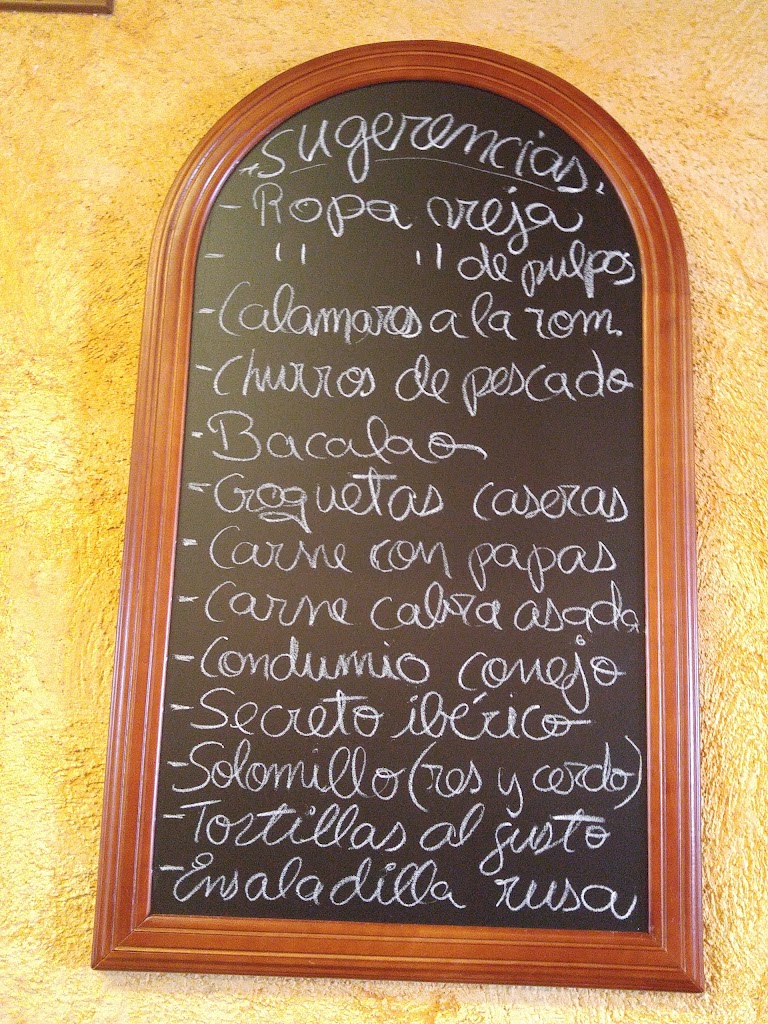 Sugerencias.
- Ropa vieja
- " " de pulpos
- Calamares a la rom.
- Churros de pescado
- Bacalao
- Croquetas caseras
- Carne con papas
- Carne cabra asada
- Condumio conejo
- Secreto ibérico
- Solomillo (res y cerdo)
- Tortillas al gusto
- Ensaladilla rusa